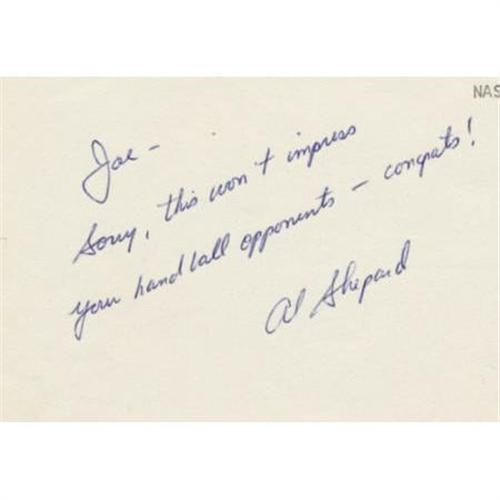 NAS
Joe -
Sorry, this won't impress
your handball opponents - congrats!
Al Shepard